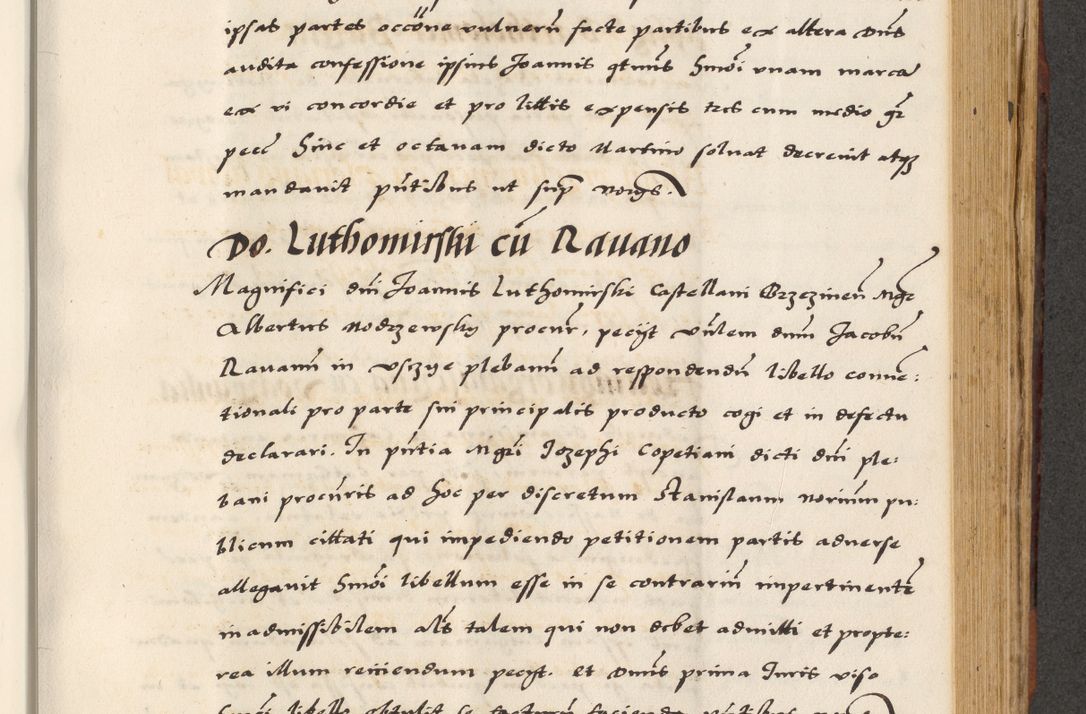 ipsas partes occōne vulnerū facte partibus ex altera Dn̄s
audita confessione ipsius Joannis qtm̄s hm̄oi vnam marca
ex vi concordie et pro littis expensis tres cum medio gr̄
pecc̄ hinc et octauam dicto Martino soluat decreuit atqȝ
mandauit pn̄tibus ut sup̄
Do. Luthomirski cū Rauano
Magnifici dn̄i Joannis Luthomirski Castellani Brzezinen̄ Mgr̄
Albertus Modrzewsky procur̄. pecijt vn̄lem dnum Jacobū
Rauanū in vsczye plebanū ad respondendū libello conuē:
tionali pro parte sui principalis producto cogi et in defectu
declarari. In pn̄tia Mgr̄i Jozephi Copetiani dicti dn̄i ple:
bani procuris ad hoc per discretum Stanislaum norium pu:
blicum cittati qui impediendo petitionem partis aduerse
allegauit hm̄oi libellum esse in se contrariū impertinentē
inadmissibilem als̄ talem qui non debet admitti et propte:
rea illum reiiciendum pecijt. et Dn̄us prima Juris viso
hm̄oi libello obtulit se facturū facienda pn̄tibus